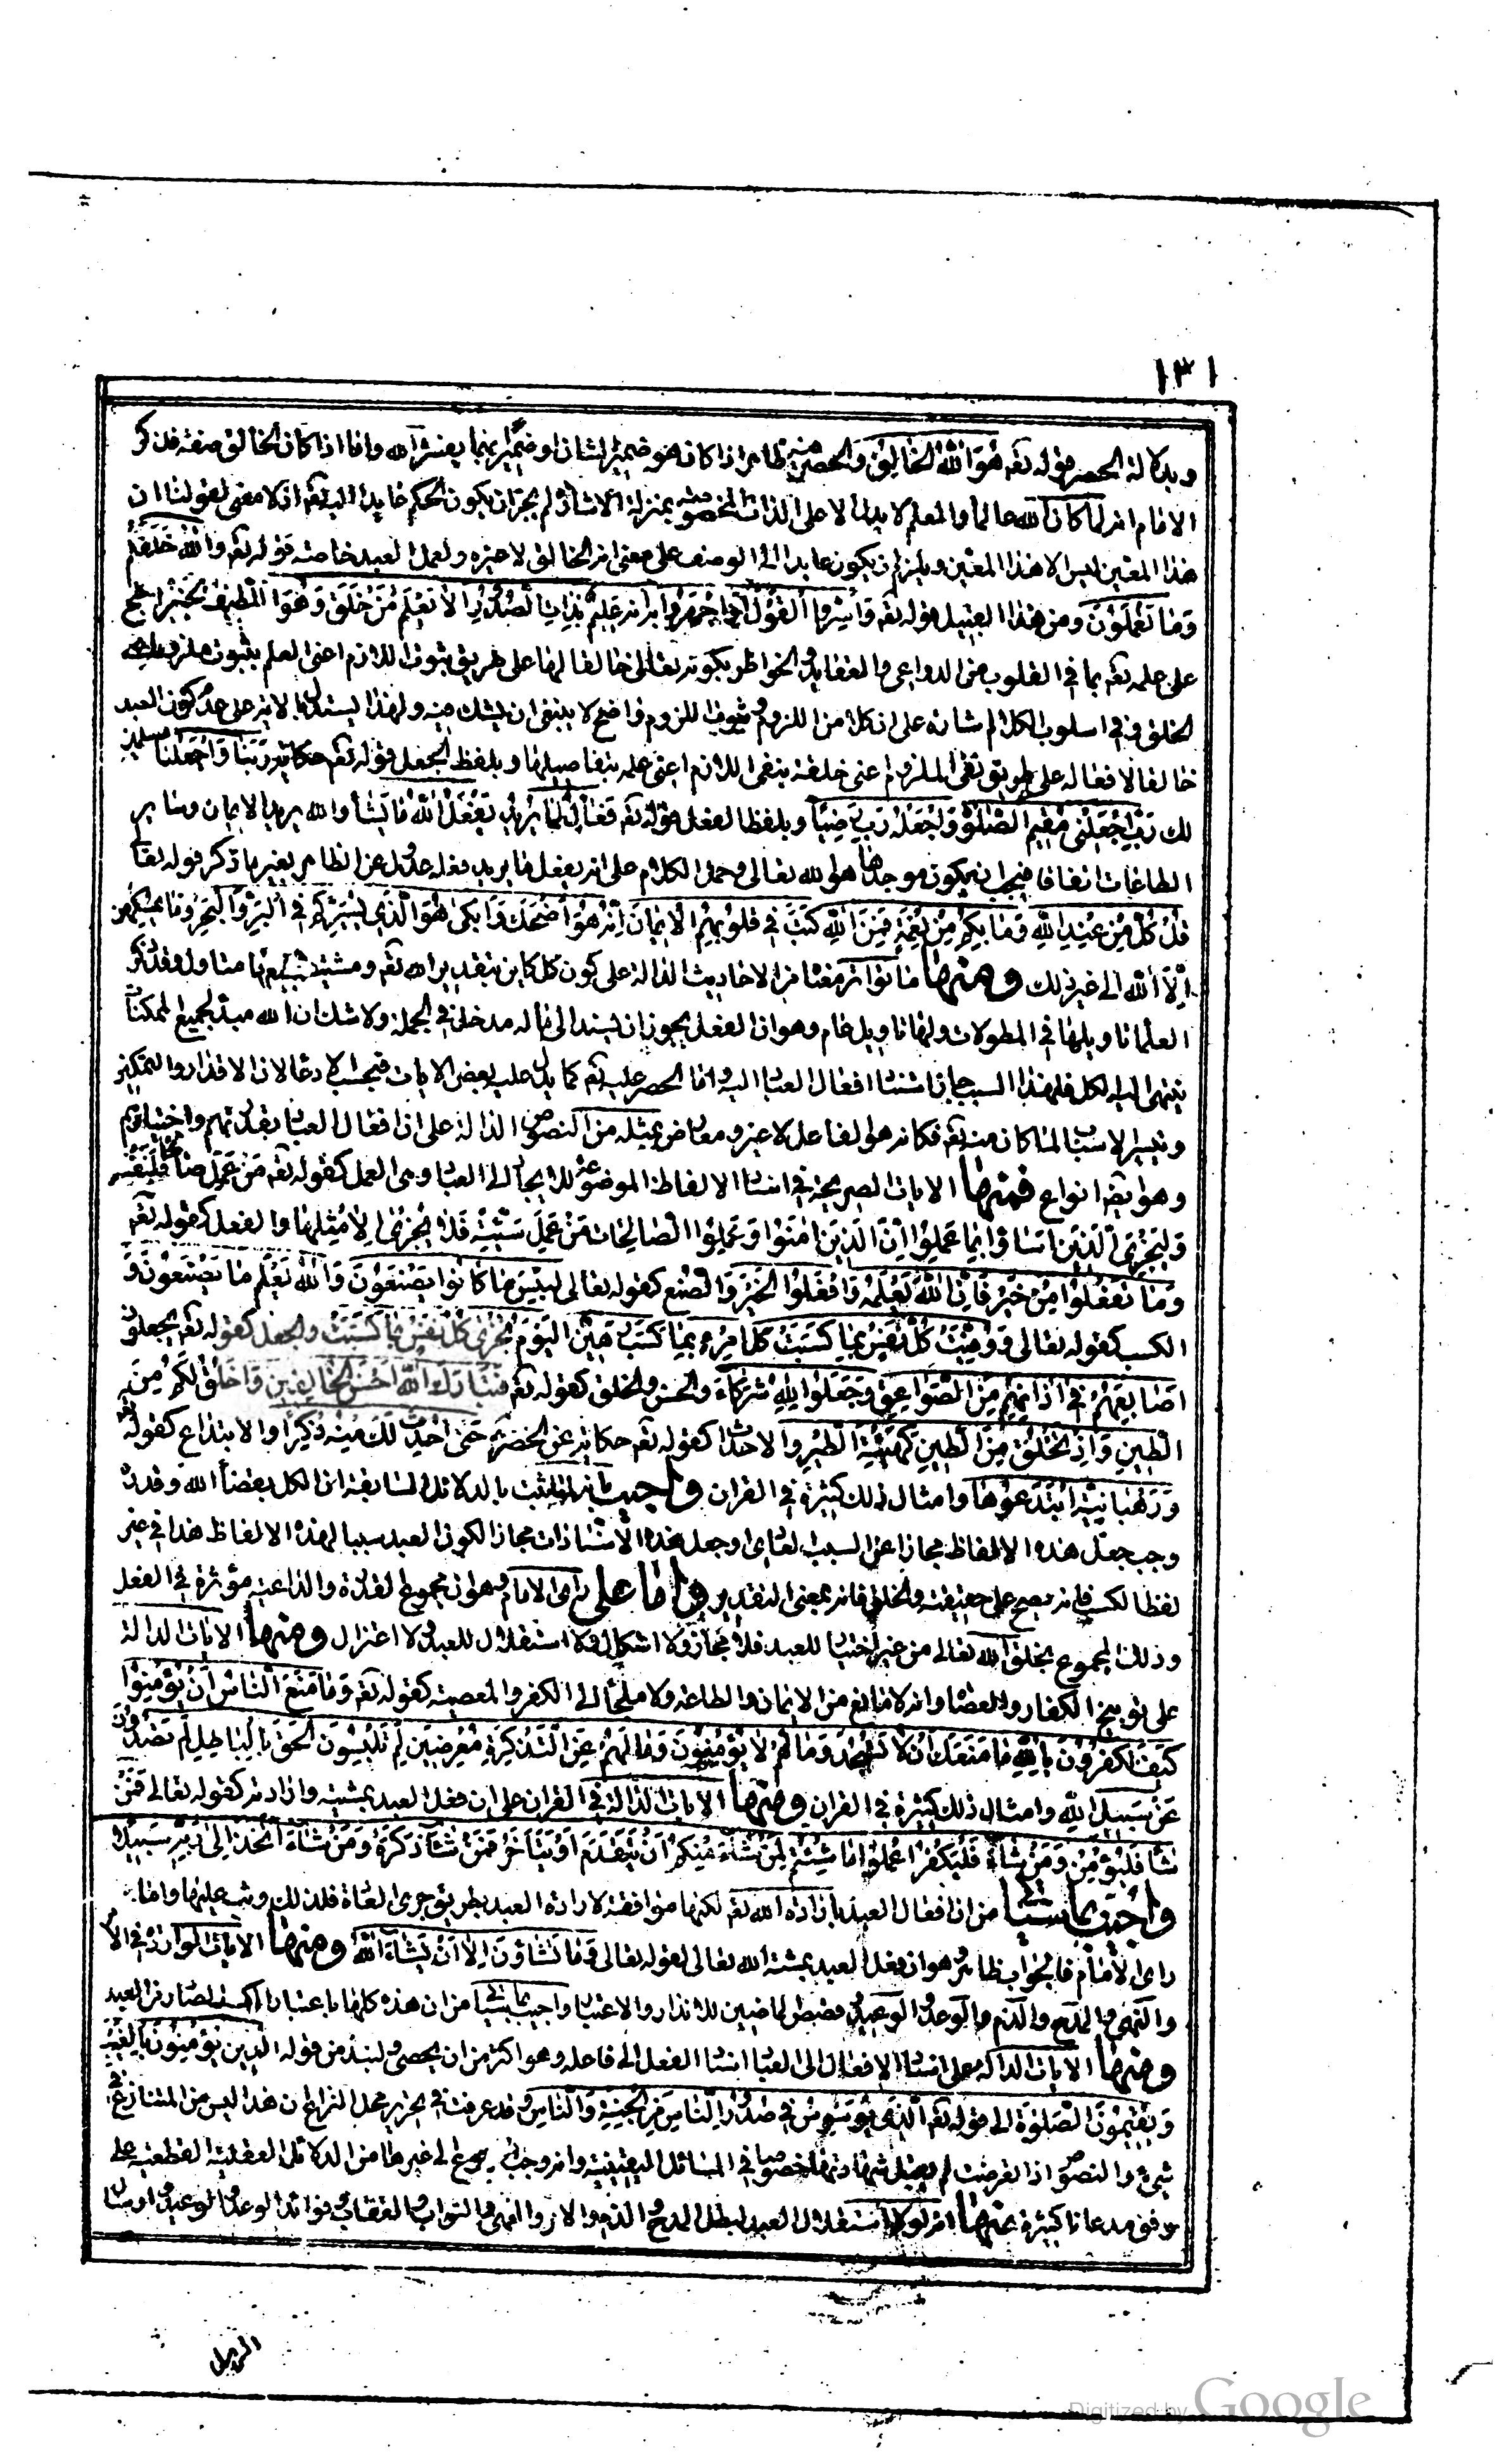 ١٣١
وبدلالة الحصر قوله تعم هُوَ اللهُ الخَالِقُ والحصر منه ظاهر اذا كان هو ضمير الشان او ضمير ابهما يفسر الله واما اذا كان الخالق صفة فذكر
الامام انه لما كان الله عالما والعلم لا يدل الا على الذات المخصوصة بمنزلة الاشارة لم يجز ان يكون الحكم عايدا اليه تعم اذ لا معنى لقولنا ان
هذا المعين ليس الا هذا المعين ويلزم ان يكون عايدا الى الوصف على معنى انه الخالق لا غيره ولعمل العبد خاصة قوله تعم والله خَلَقَكُمْ
وَمَا تَعْمَلُونَ ومن هذا القبيل قوله تعم وَاَسِرُّوا القَوْلَ اَوِ اجْهَرُوا بِهِ اِنَّهُ عَلِيمٌ بِذَاتِ الصُّدُورِ اَلَا يَعْلَمُ مَنْ خَلَقَ وَهُوَ اللَّطِيفُ الخَبِيرُ احتج
على علمه تعم بما في القلوب من الدواعي والعقايد والخواطر بكونه تعالى خالقا لها على طريق ثبوت اللازم اعنى العلم بثبوت ملزومه اعنى
الخلق وفي اسلوب الكلام اشارة على ان كلا من اللزوم وثبوت الملزوم واضح لا ينبغى ان يشك فيه ولهذا يستدل بالاية على عدم كون العبد
خالقا لافعاله على طريق نفى الملزوم اعنى خلقه بنفى اللازم اعنى علمه بتفاصيلها وبلفظ الجعل قوله تعم حكاية رَبَّنَا وَاجْعَلْنَا مسلمين
لك رَبِّ اجْعَلْنِي مُقِيمَ الصَّلٰوةِ وَاجْعَلْهُ رَبِّ رَضِيًّا وبلفظ الفعل قوله تعم فَعَّالٌ لِمَا يُرِيدُ يَفْعَلُ اللهُ مَا يَشَاءُ والله يريد الايمان وساير
الطاعات اتفاقا فيجب ان يكون موجدها هو الله تعالى وحمل الكلام على انه يفعل ما يريد فعله عدول عن الظاهر بغير ما ذكر قوله تعا
قُلْ كُلٌّ مِنْ عِنْدِ اللهِ وَمَا بِكُمْ مِنْ نِعْمَةٍ فَمِنَ اللهِ كَتَبَ فِي قُلُوبِهِمُ الْاِيمَانَ اِنَّهُ هُوَ اَضْحَكَ وَاَبْكَى هُوَ الَّذِي يُسَيِّرُكُمْ فِي الْبَرِّ وَالْبَحْرِ وَمَا يُمْسِكُهُنَّ
اِلَّا اللهُ الى غير ذلك ومنها ما تواتر معناه من الاحاديث الدالة على كون كل كاين بتقدير الله تعم ومشيته وقد ذكر
العلماء تاويلها في المطولات ولها تاويل عام وهو ان الفعل يجوز ان يسند الى ما له مدخل في الجملة ولا شك ان الله مبدأ لجميع الممكنات
ينتهى اليه الكل فلهذا السبب جاز استناد افعال العباد اليه واما الحصر عليه تعم كما يدل عليه بعض الايات فبحسب الادعاء لان الاقدار والتمكين
وتيسير الاسباب لما كان منه تعم فكانه هو الفاعل لا غير ومعارض بمثله من النصوص الدالة على ان افعال العباد بقدرتهم واختيارهم
وهو ايضا انواع فمنها الايات الصريحة في اسناد الالفاظ الموضوعة للايجاد الى العباد وهي العمل كقوله تعم مَنْ عَمِلَ صَالِحًا فَلِنَفْسِهِ
وَلِيَجْزِيَ الَّذِينَ اَسَاؤُا بِمَا عَمِلُوا اِنَّ الَّذِينَ اٰمَنُوا وَعَمِلُوا الصَّالِحَاتِ مَنْ عَمِلَ سَيِّئَةً فَلَا يُجْزٰى اِلَّا مِثْلَهَا والفعل كقوله تعم
وَمَا تَفْعَلُوا مِنْ خَيْرٍ فَاِنَّ اللهَ يَعْلَمُهُ وَافْعَلُوا الْخَيْرَ والصنع كقوله تعالى لَبِئْسَ مَا كَانُوا يَصْنَعُونَ وَاللهُ يَعْلَمُ مَا تَصْنَعُونَ وَ
الكسب كقوله تعالى وَوُفِّيَتْ كُلُّ نَفْسٍ بِمَا كَسَبَتْ كُلُّ امْرِئٍ بِمَا كَسَبَ رَهِينٌ الْيَوْمَ تُجْزٰى كُلُّ نَفْسٍ بِمَا كَسَبَتْ والجعل كقوله تعم يَجْعَلُونَ
اَصَابِعَهُمْ فِي اٰذَانِهِمْ مِنَ الصَّوَاعِقِ وَجَعَلُوا لِلهِ شُرَكَاءَ والخلق كقوله تعم فَتَبَارَكَ اللهُ اَحْسَنُ الْخَالِقِينَ وَاَخْلُقُ لَكُمْ مِنَ
الطِّينِ وَاِذْ تَخْلُقُ مِنَ الطِّينِ كَهَيْئَةِ الطَّيْرِ والاحداث كقوله تعم حكاية عن الخضر حَتّٰى اُحْدِثَ لَكَ مِنْهُ ذِكْرًا والابتداع كقوله
وَرَهْبَانِيَّةً ابْتَدَعُوهَا وامثال ذلك كثيرة في القران واجيب بانه لما ثبت بالدلائل السابقة ان الكل بقضاء الله وقدره
وجب جعل هذه الالفاظ مجازا عن السبب العادي او جعل هذه الاسنادات مجازا لكون العبد سببا لهذه الالفاظ هذا في غير
لفظ الكسب فانه يصح على حقيقته والخلق فانه بمعنى التقدير واما على راى الامام وهو ان مجموع القدرة والداعية مؤثرة في الفعل
وذلك المجموع بخلق الله تعالى من غير اختيار للعبد فلا مجاز ولا اشكال ولا استقلال للعبد ولا اعتزال ومنها الايات الدالة
على توبيخ الكفار والعصاة وانه لا مانع من الايمان والطاعة ولا ملجأ الى الكفر والمعصية كقوله تعم وَمَا مَنَعَ النَّاسَ اَنْ يُؤْمِنُوا
كَيْفَ تَكْفُرُونَ بِاللهِ مَا مَنَعَكَ اَنْ لَا تَسْجُدَ وَمَا لَهُمْ لَا يُؤْمِنُونَ وَمَا لَهُمْ عَنِ التَّذْكِرَةِ مُعْرِضِينَ لِمَ تَلْبِسُونَ الْحَقَّ بِالْبَاطِلِ لِمَ تَصُدُّونَ
عَنْ سَبِيلِ اللهِ وامثال ذلك كثيرة في القران ومنها الايات الدالة في القران على ان فعل العبد بمشيته وارادته كقوله تعالى فَمَنْ
شَاءَ فَلْيُؤْمِنْ وَمَنْ شَاءَ فَلْيَكْفُرْ اعْمَلُوا مَا شِئْتُمْ لِمَنْ شَاءَ مِنْكُمْ اَنْ يَتَقَدَّمَ اَوْ يَتَاَخَّرَ فَمَنْ شَاءَ ذَكَرَهُ وَمَنْ شَاءَ اتَّخَذَ اِلٰى رَبِّهِ سَبِيلًا
واجيب بما سياتى من ان افعال العبد بارادة الله تعم لكنها موافقة لارادة العبد بطريق جرى العادة فلذلك رتب عليها واما
راى الامام فالجواب ظاهر وهو ان فعل العبد بمشية الله تعالى لقوله تعالى وَمَا تَشَاؤُنَ اِلَّا اَنْ يَشَاءَ اللهُ ومنها الايات الواردة في الامر
والنهى والمدح والذم والوعد والوعيد وقصص الماضين للانذار والاعتبار واجيب بما سياتى من ان هذه كلها باعتبار الكسب الصادر من العبد
ومنها الايات الدالة على اسناد الافعال الى العباد اسناد الفعل الى فاعله وهو اكثر من ان يحصى ولنبد من قوله الَّذِينَ يُؤْمِنُونَ بِالْغَيْبِ
وَيُقِيمُونَ الصَّلٰوةَ الى قوله تعم الَّذِي يُوَسْوِسُ فِي صُدُورِ النَّاسِ مِنَ الْجِنَّةِ وَالنَّاسِ وقد عرفت في تحرير محل النزاع ان هذا ليس من المتنازع في
شيء والنصوص اذا تعارضت لم يقبل شهادتها خصوصا في المسائل اليقينية وانه وجب الرجوع الى غيرها من الدلائل العقلية القطعية على
وفق مدعانا كثيرة منها انه لولا استقلال العبد لبطل المدح والذم والامر والنهى والثواب والعقاب وفوائد الوعد والوعيد وارسال
الرسل
Digitized by Google